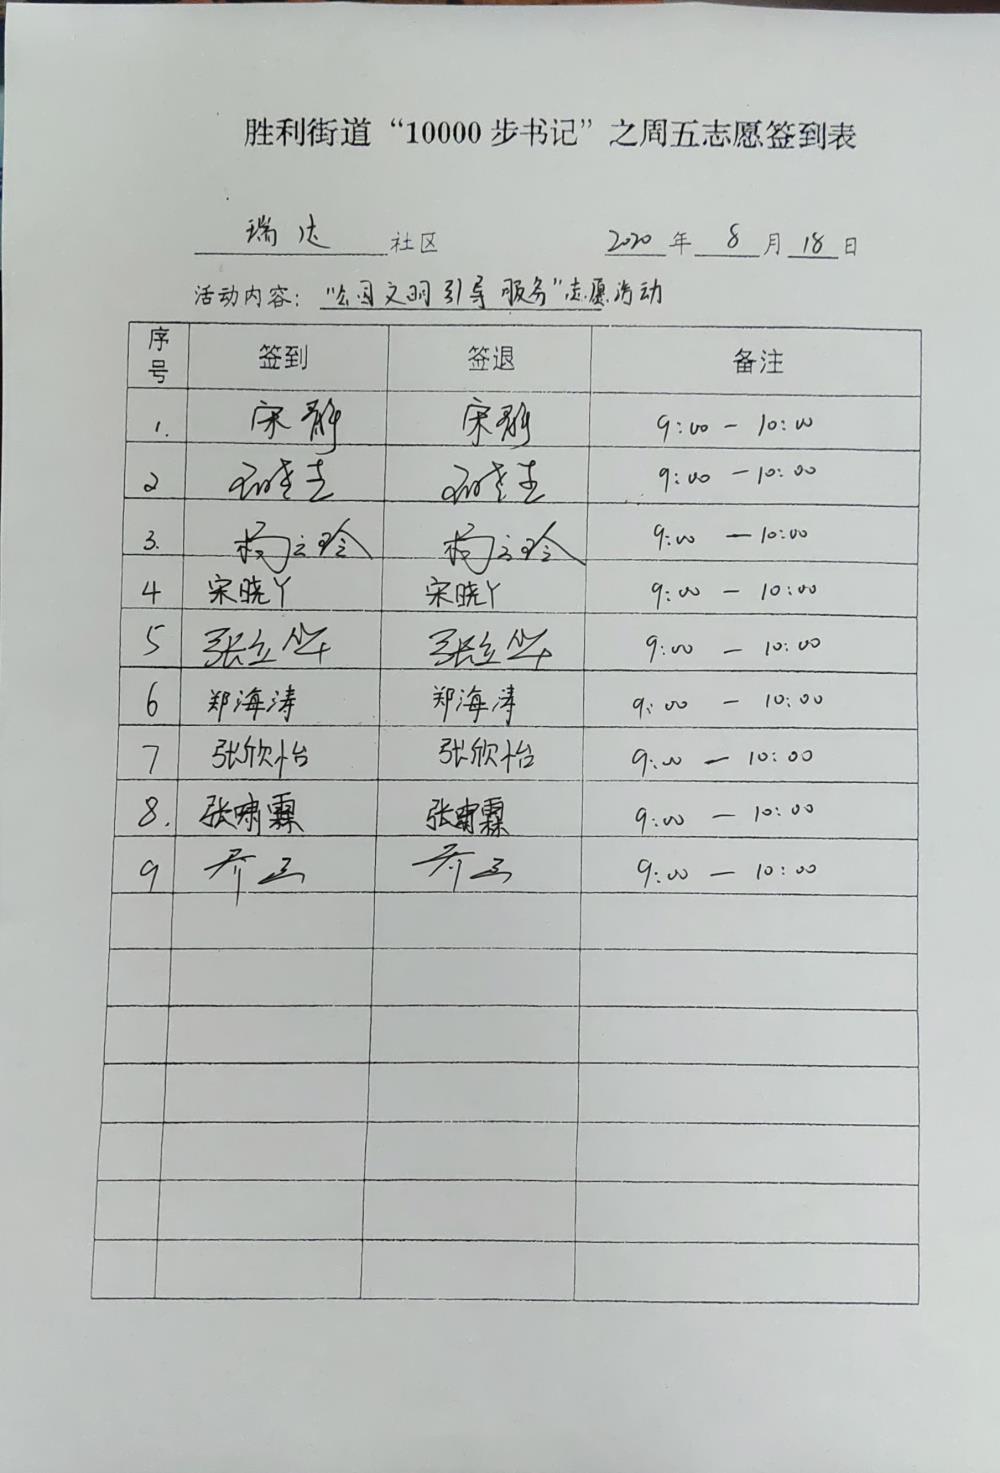 胜利街道“10000步书记”之周五志愿签到表
瑞达 社区 2020 年 8 月 18 日
活动内容：“公园文明引导服务”志愿活动
序号 签到 签退 备注
1. 宋静 宋静 9:00 — 10:00
2 9:00 — 10:00
3. 杨立玲 杨立玲 9:00 — 10:00
4 宋晓丫 宋晓丫 9:00 — 10:00
5 张立华 张立华 9:00 — 10:00
6 郑海涛 郑海涛 9:00 — 10:00
7 张欣怡 张欣怡 9:00 — 10:00
8. 张啸霖 张啸霖 9:00 — 10:00
9 9:00 — 10:00